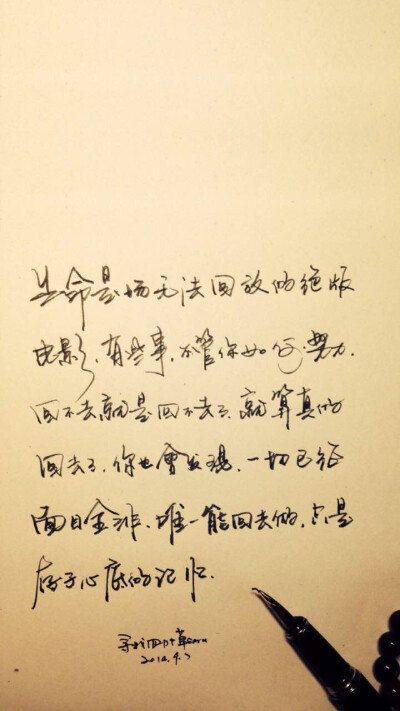 生命是场无法回放的绝版
电影、有些事,不管你如何努力.
回不去就是回不去了、就算真的
回去了、你也會发现、一切已经
面目全非、唯一能回去的,只是
存于心底的记忆.
寻找四叶草
2014.9.7